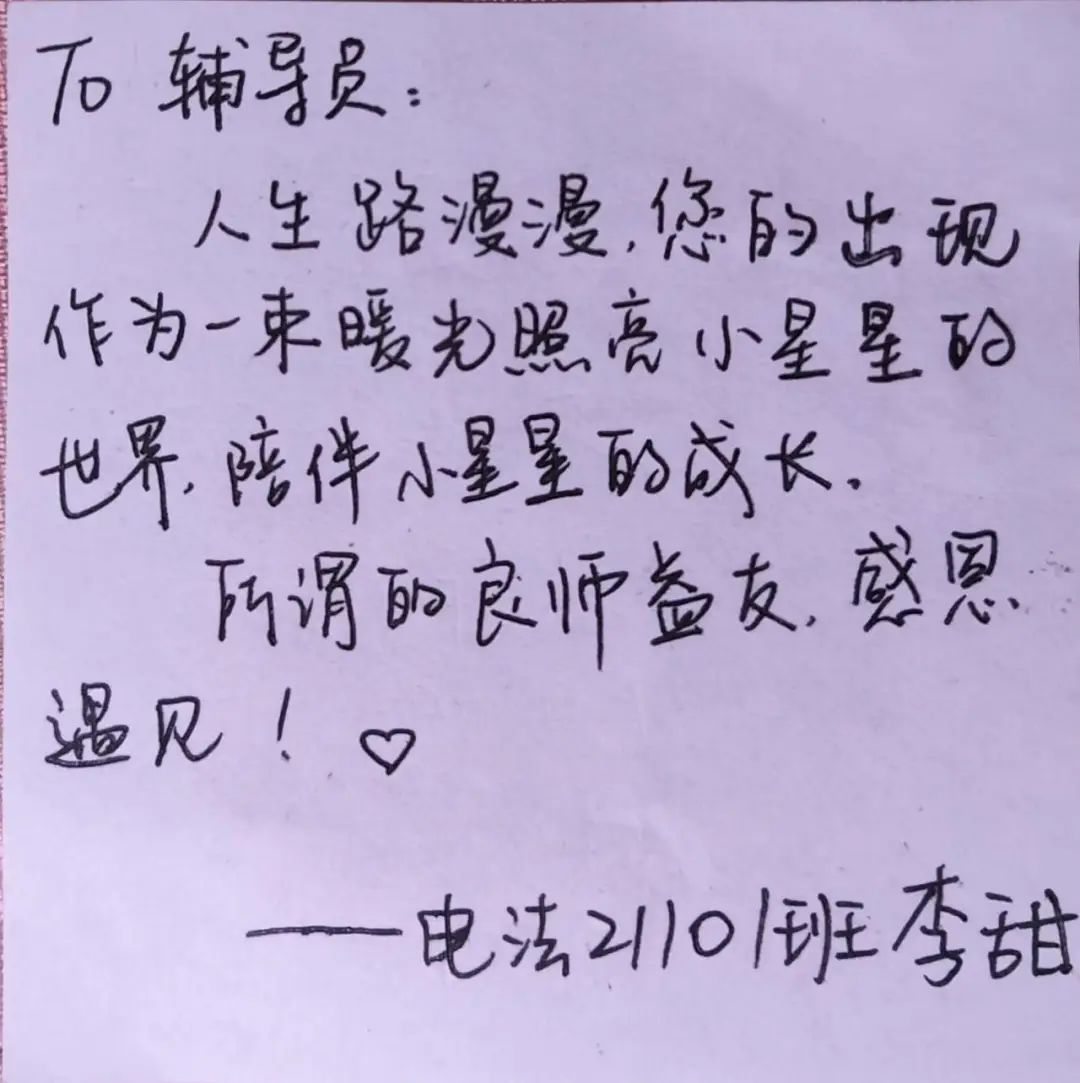 To 辅导员：
人生路漫漫，您的出现
作为一束暖光照亮小星星的
世界，陪伴小星星的成长。
所谓的良师益友，感恩
遇见！♡
——电法21101班李甜